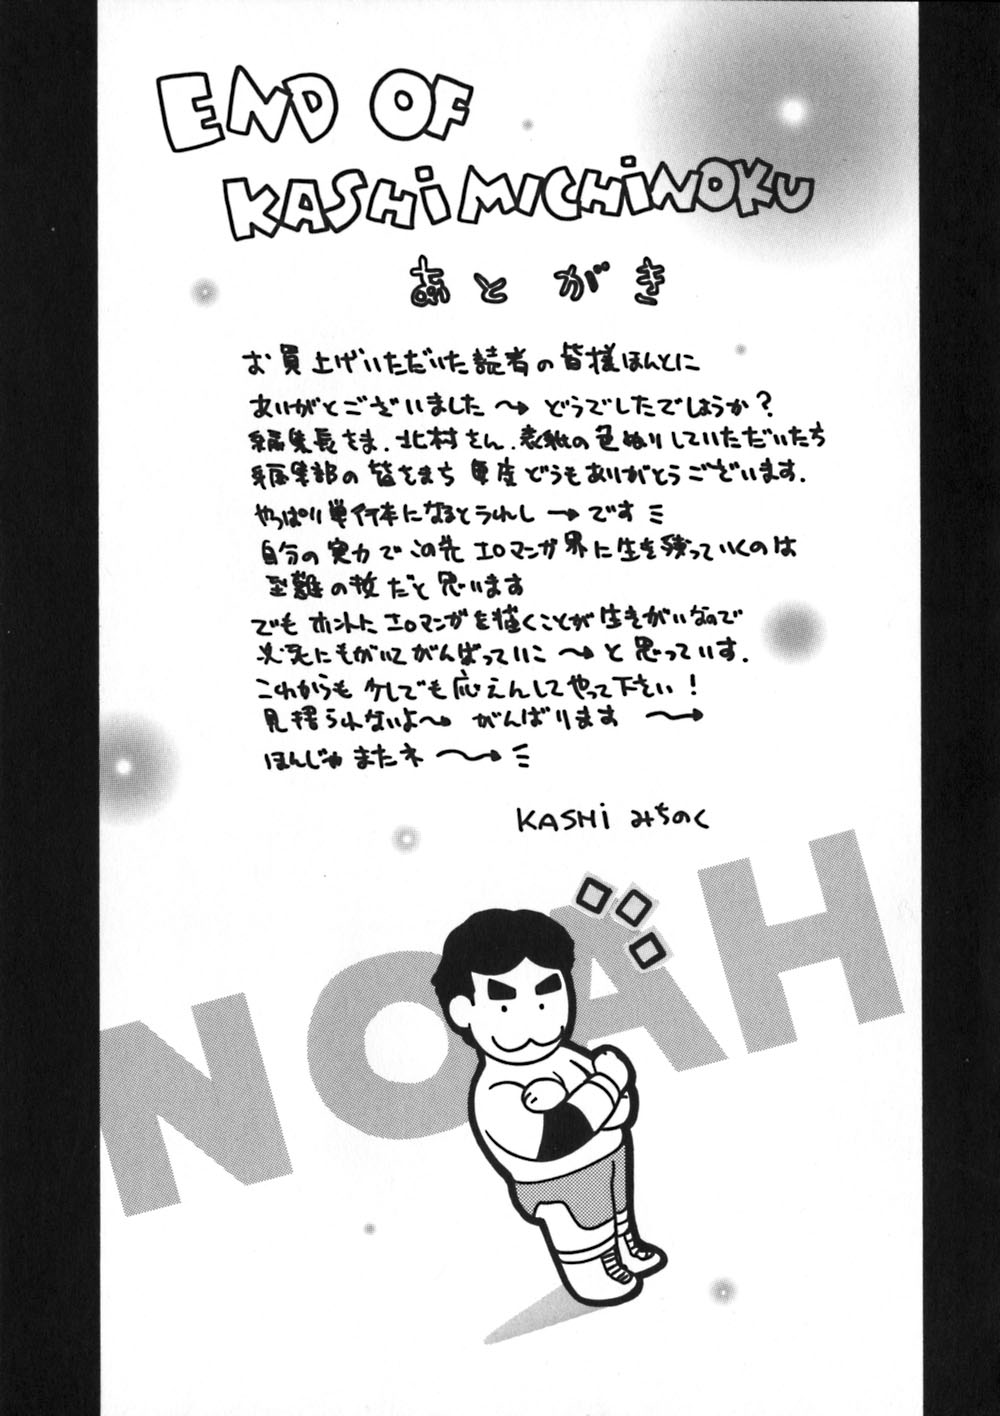 END OF
KASHIMICHINOKU
あとがき
お買上げいただいた読者の皆様ほんとに
ありがとございました〜 どうでしたでしょうか?
編集長さま.北村さん.表紙の色ぬりしていただいたち
編集部の皆さまち 毎度どうもありがとうございます.
やっぱり単行本になるとうれし〜です
自分の実力でこの先エロマンガ界に生き残っていくのは
至難の技だと思います
でもホントにエロマンガを描くことが生きがいなので
必死にもがいてがんばっていこ〜と思っています.
これからも少しでも応えんしてやって下さい!
見捨られないよ〜 がんばります〜
ほんじゃまたネ〜
KASHI みちのく
NOAH